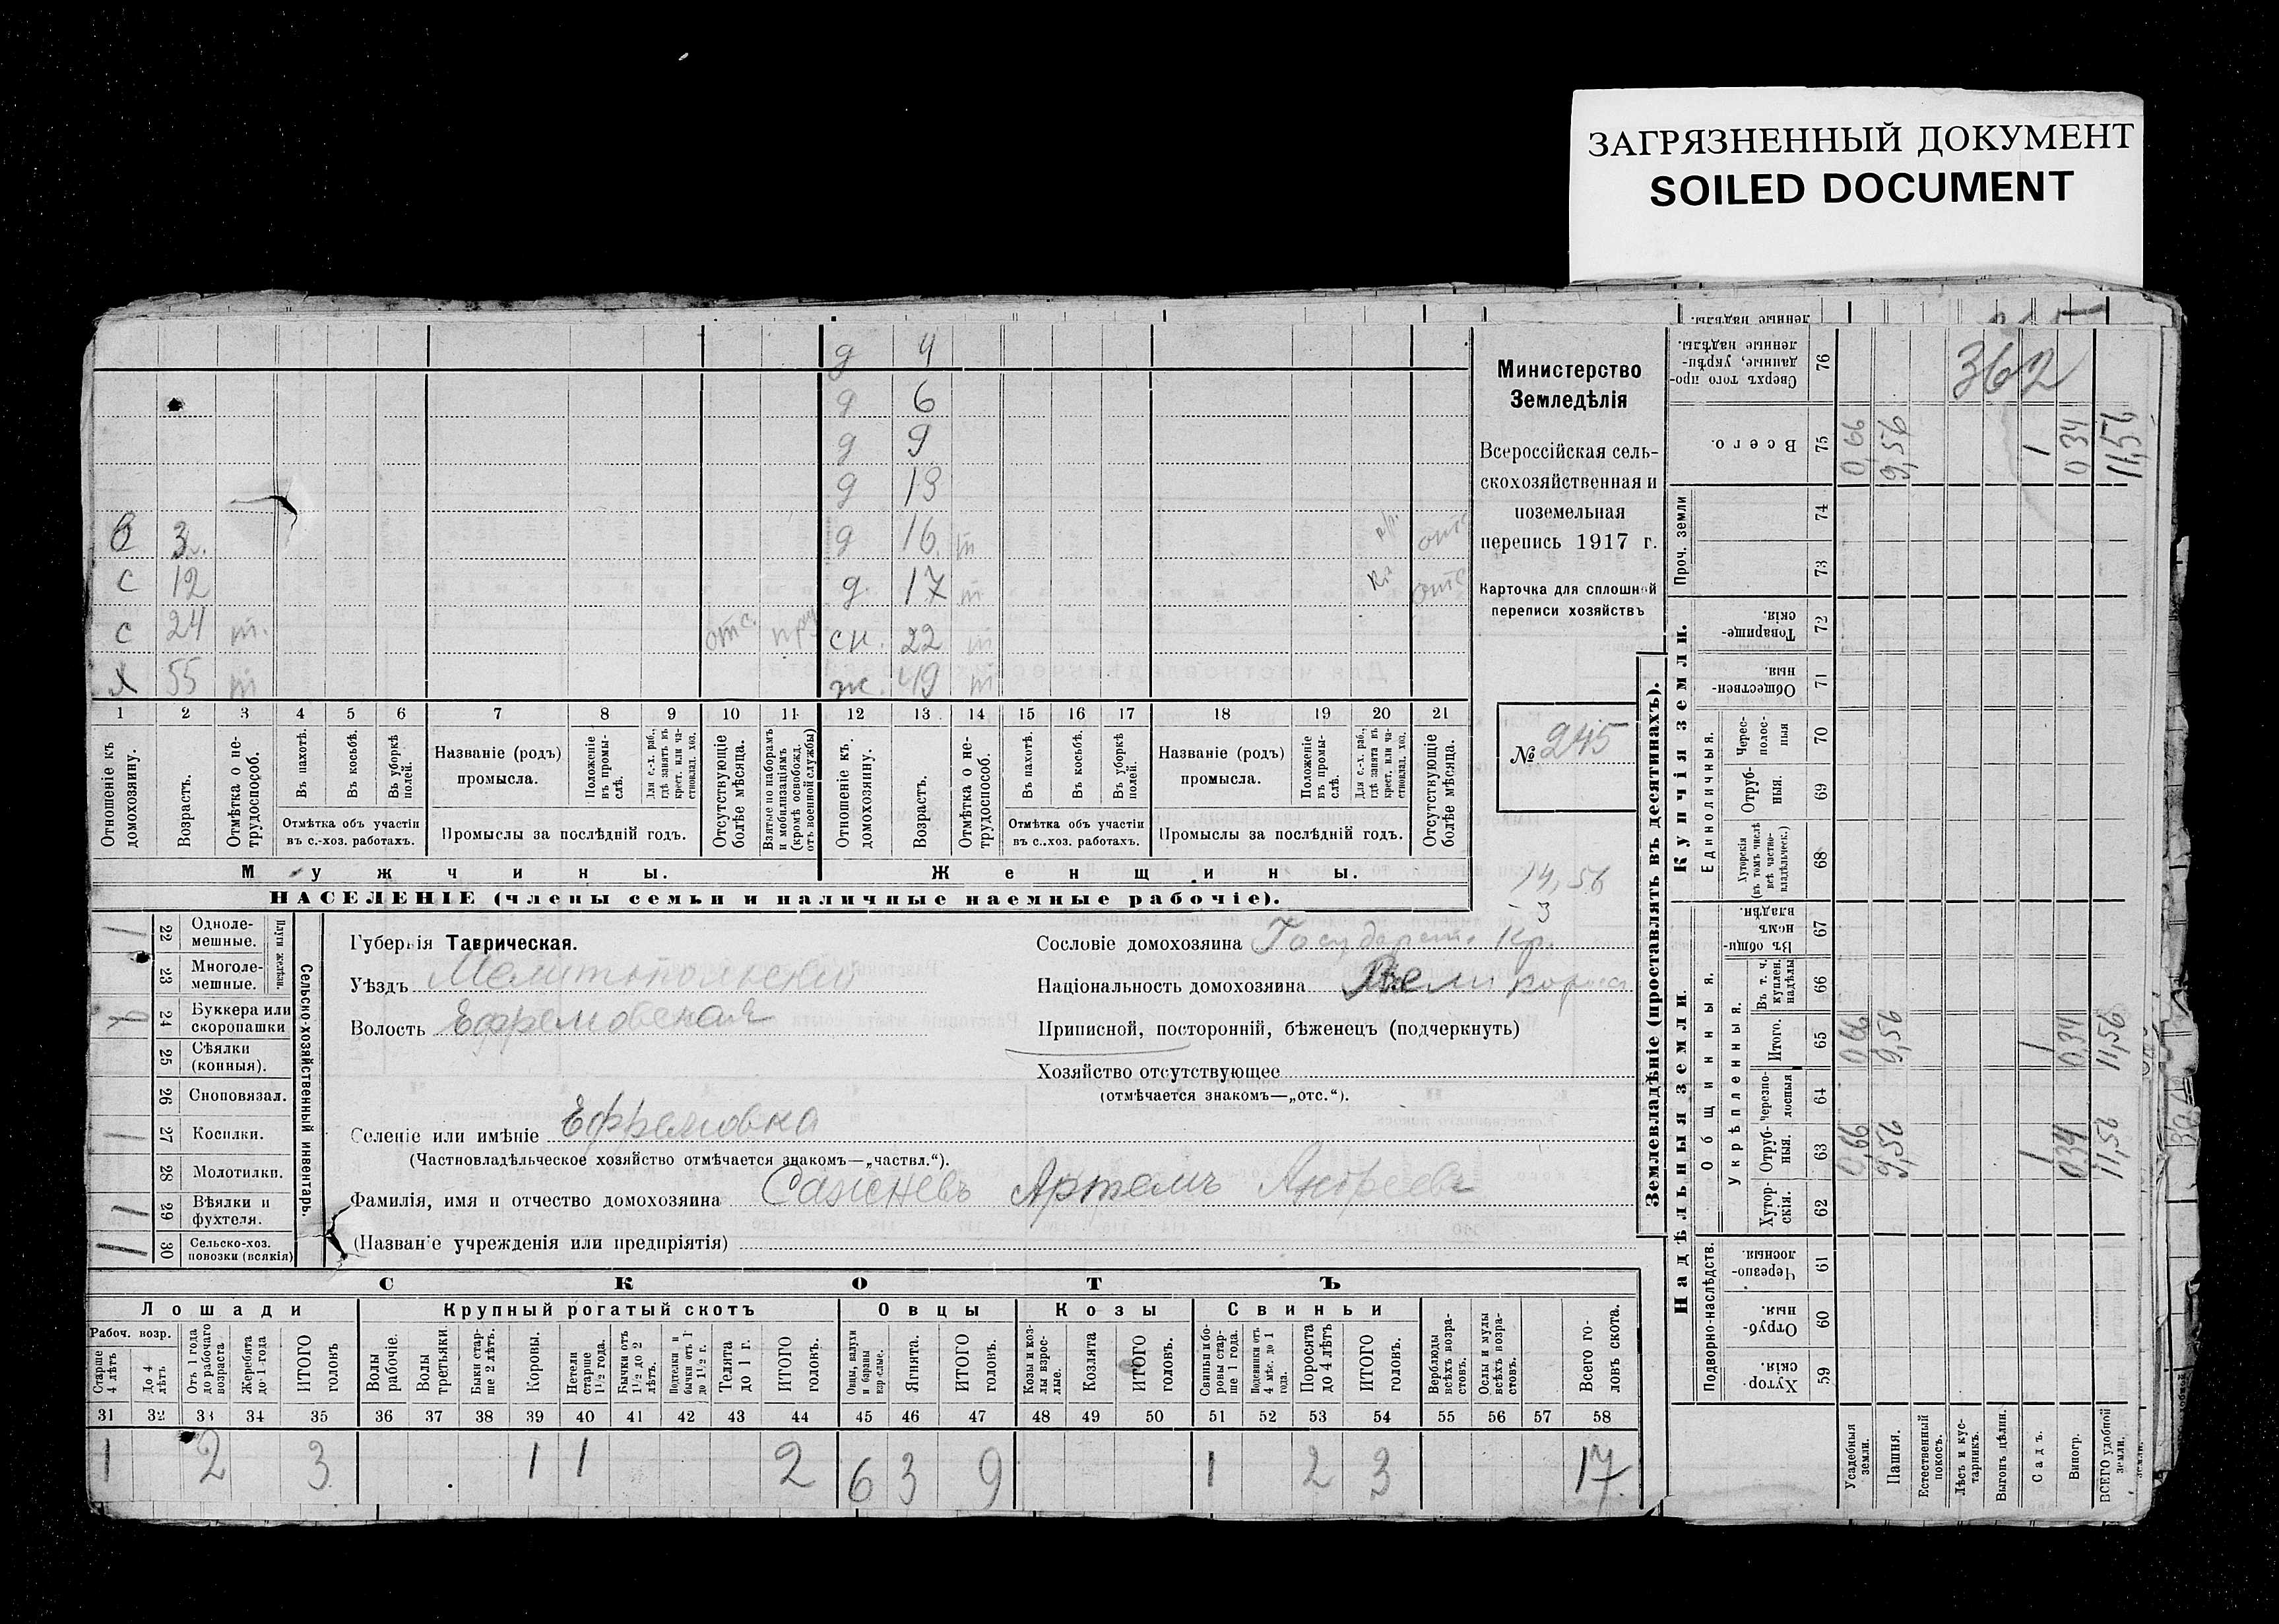 ЗАГРЯЗНЕННЫЙ ДОКУМЕНТ
SOILED DOCUMENT
д 4
д 6
д 9
д 13
3 д 16 т отс
с 12 д. 17 т отс
с 24 т. отс. сн. 22 т
х 55 т ж. 49 т
1 2 3 4 5 6 7 8 9 10 11 12 13 14 15 16 17 18 19 20 21
Отношеніе къ домохозяину.
Возрастъ.
Отмѣтка о нетрудоспособ.
Въ пахотѣ.
Въ косьбѣ.
Въ уборкѣ полей.
Отмѣтка объ участіи въ с.-хоз. работахъ.
Названіе (родъ) промысла.
Положеніе въ промыслѣ.
Для с.-х. раб., гдѣ занятъ въ крест. или частновлад. хоз.
Промыслы за послѣдній годъ.
Отсутствующіе болѣе мѣсяца.
Взятые по наборамъ и мобилизаціямъ (кромѣ освобожд. отъ военной службы)
Отношеніе къ домохозяину.
Возрастъ.
Отмѣтка о нетрудоспособ.
Въ пахотѣ.
Въ косьбѣ.
Въ уборкѣ полей.
Отмѣтка объ участіи въ с.-хоз. работахъ.
Названіе (родъ) промысла.
Положеніе въ промыслѣ.
Для с.-х. раб., гдѣ занята въ крест. или частновлад. хоз.
Промыслы за послѣдній годъ.
Отсутствующіе болѣе мѣсяца.
Мужчины. Женщины.
НАСЕЛЕНІЕ (члены семьи и наличные наемные рабочіе).
Министерство
Земледѣлія
Всероссійская сель-
скохозяйственная и
поземельная
перепись 1917 г.
Карточка для сплошной
переписи хозяйствъ
№ 245
14,56
- 3
Плуги желѣзн.
22 Одноле-мешные.
23 Многоле-мешные.
24 Буккера или скоропашки
25 Сѣялки (конныя).
26 Сноповязал.
27 Косилки.
28 Молотилки.
29 Вѣялки и фухтеля.
30 Сельско-хоз. повозки (всякія)
Сельско-хозяйственный инвентарь.
Губернія Таврическая.
Уѣздъ Мелитопольскій
Волость Ефремовская
Селеніе или имѣніе Ефремовка
(Частновладѣльческое хозяйство отмѣчается знакомъ—„частвл.“).
Фамилія, имя и отчество домохозяина Сажневъ Артемъ Андреевъ
(Названіе учрежденія или предпріятія)
Сословіе домохозяина Государств. Кр.
Національность домохозяина Великоросс
Приписной, посторонній, бѣженецъ (подчеркнуть)
Хозяйство отсутствующее
(отмѣчается знакомъ—„отс.“).
СКОТЪ
Лошади Крупный рогатый скотъ Овцы Козы Свиньи
Рабоч. возр.
Старше 4 лѣтъ
До 4 лѣтъ
Отъ 1 года до рабочаго возраста
Жеребята до 1 года
ИТОГО головъ
Волы рабочіе.
Волы третьяки.
Быки старше 2 лѣтъ.
Коровы.
Нетели старше 1½ года.
Бычки отъ 1½ до 2 лѣтъ.
Подтелки и бычки отъ 1 до 1½ г.
Телята до 1 г.
ИТОГО головъ.
Овцы, валухи и бараны взрослые.
Ягнята.
ИТОГО головъ.
Козы и козлы взрослые.
Козлята
ИТОГО головъ.
Свиньи и боровы старше 1 года.
Подсвинки отъ 4 мѣс. до 1 года.
Поросята до 4 лѣтъ
ИТОГО головъ.
Верблюды всѣхъ возрастовъ.
Ослы и мулы всѣхъ возрастовъ.
Всего головъ скота.
31 32 33 34 35 36 37 38 39 40 41 42 43 44 45 46 47 48 49 50 51 52 53 54 55 56 57 58
1 2 3 1 1 2 6 3 9 1 2 3 17.
Землевладѣніе (проставлять въ десятинахъ).
Надѣльныя земли. Купчія земли. Проч. земли
Подворно-наслѣдств. Общинныя. Укрѣпленныя. Единоличныя.
59 Хуторскія.
60 Отрубныя.
61 Черезполосныя.
62 Хуторскія.
63 Отрубныя.
64 Черезполосныя
65 Итого.
66 Въ т. ч. куплен. надѣлы
67 Въ общинномъ владѣн.
68 Хуторскія (въ томъ числѣ всѣ частновладѣльческ.)
69 Отрубныя.
70 Черезполосныя
71 Общественныя.
72 Товарищескія.
73
74
75 Всего.
76 Сверхъ того проданные, укрѣпленные надѣлы.
362
Усадебныя земли. 0,66 0,66 0,66
Пашня. 9,56 9,56 9,56
Естественный покосъ.
Лѣсъ и кустарникъ.
Выгонъ, цѣлин.
Садъ. 1 1 1
Виногр. 0 34 0 34 0 34
ВСЕГО удобной земли. 11,56 11,56 11,56